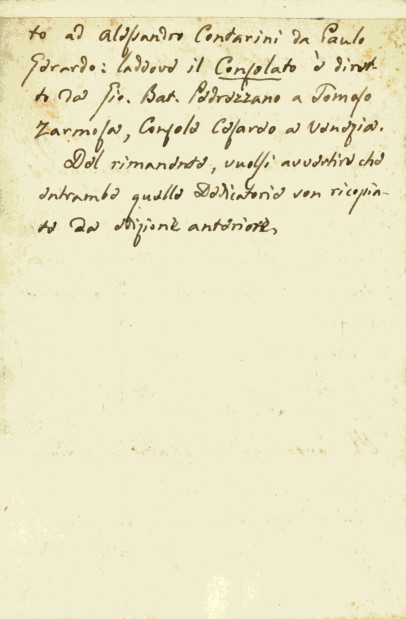 to ad Alessandro Contarini da Paulo
Gerardo: laddove il Consolato è diret-
to da Gio. Bat. Pedrezzano a Tomaso
Zarmosa, Console Cesareo a Venezia.
Del rimanente, vuolsi avvertire che
entrambe quelle Dedicatorie son ricopia-
te da edizione anteriore.